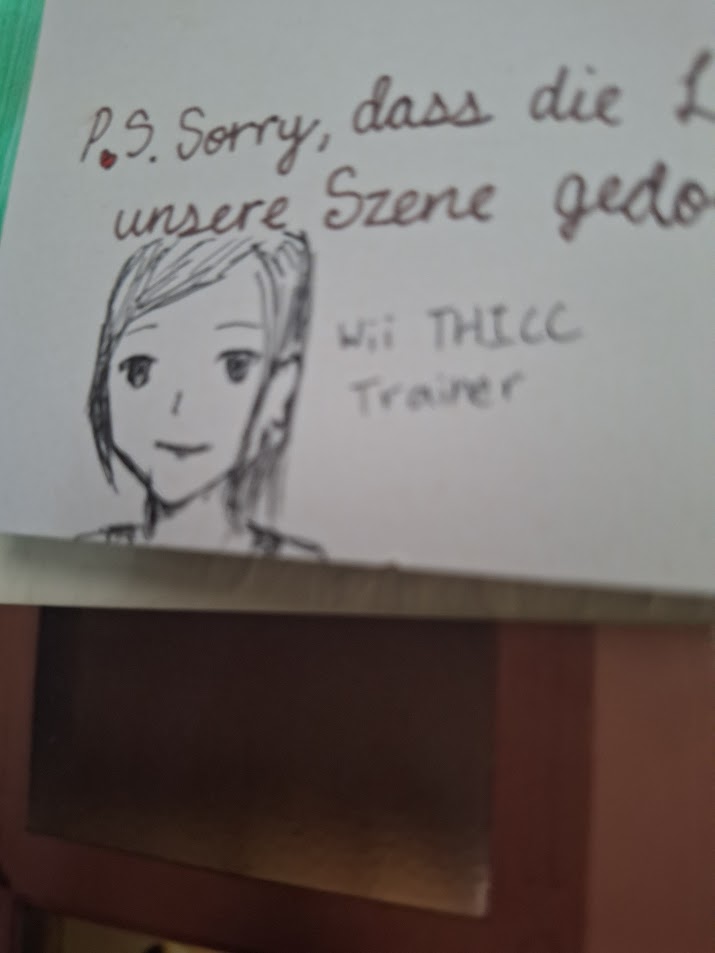 P.S. Sorry, dass die
unsere Szene
Wii THICC
Trainer